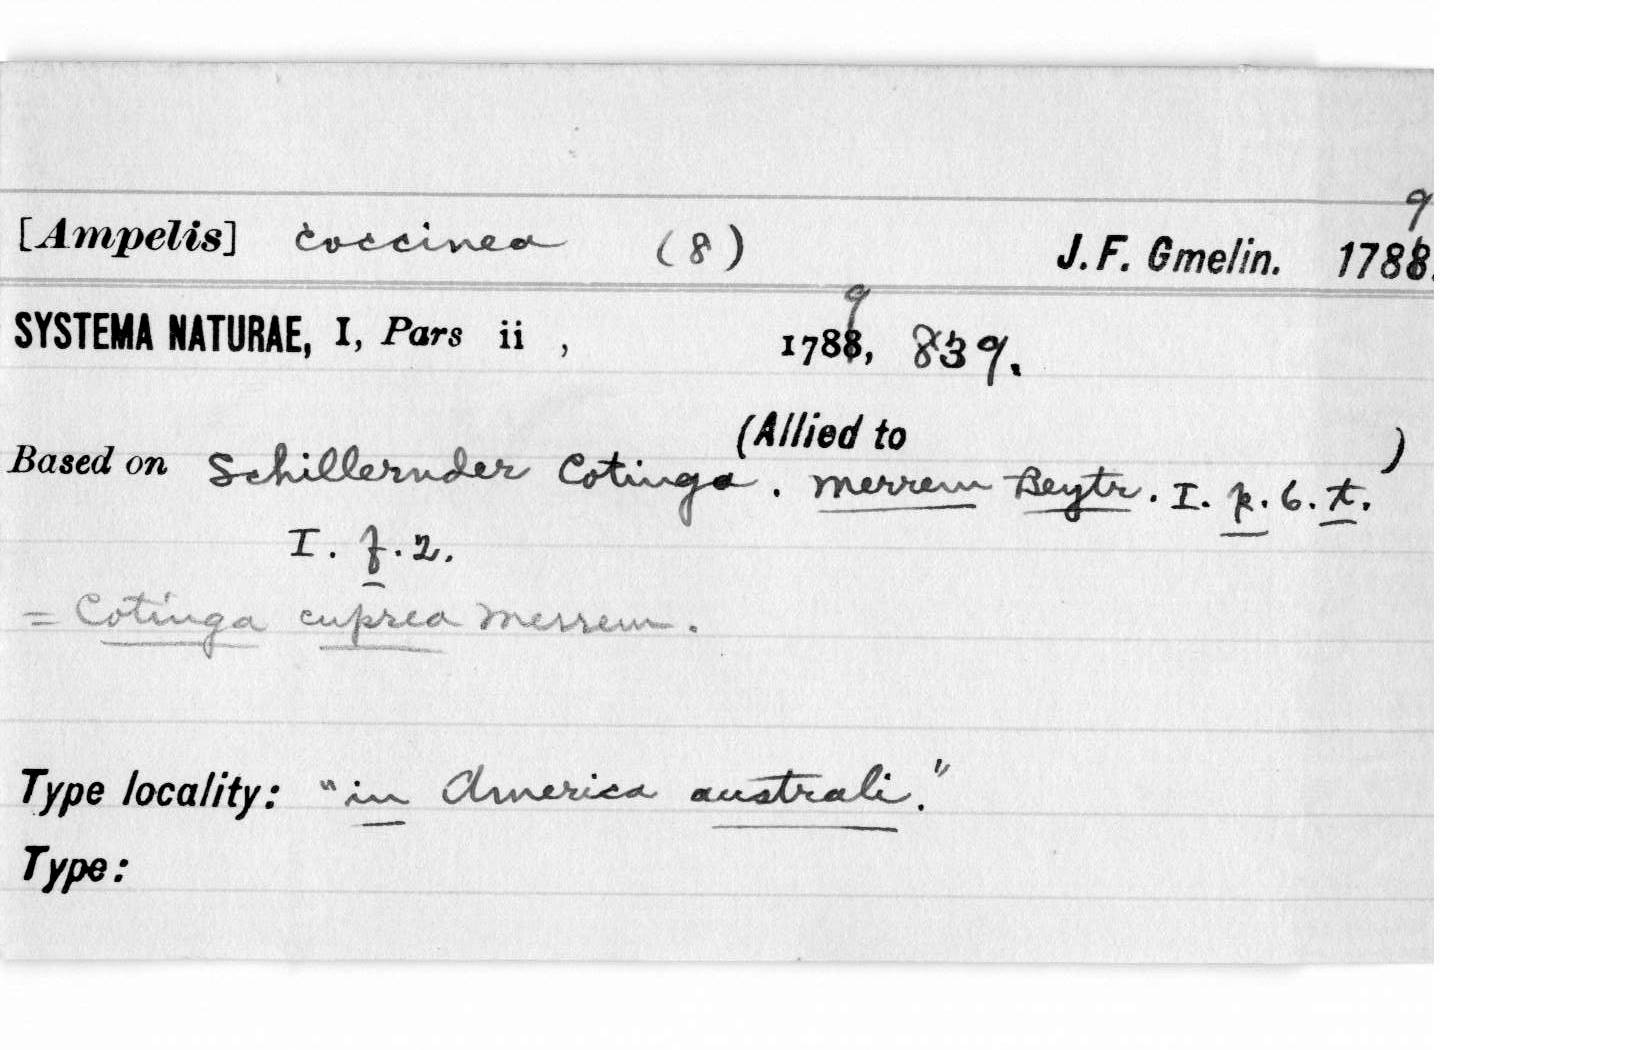 [Ampelis] coccinea (8) J. F. Gmelin. 1789.
SYSTEMA NATURAE, I, Pars ii , 1789, 839.
(Allied to )
Based on Schillernder Cotinga. Merrem Beytr. I. p. 6. t.
I. f. 2.
= Cotinga cuprea Merrem.
Type locality: "in America australi."
Type: